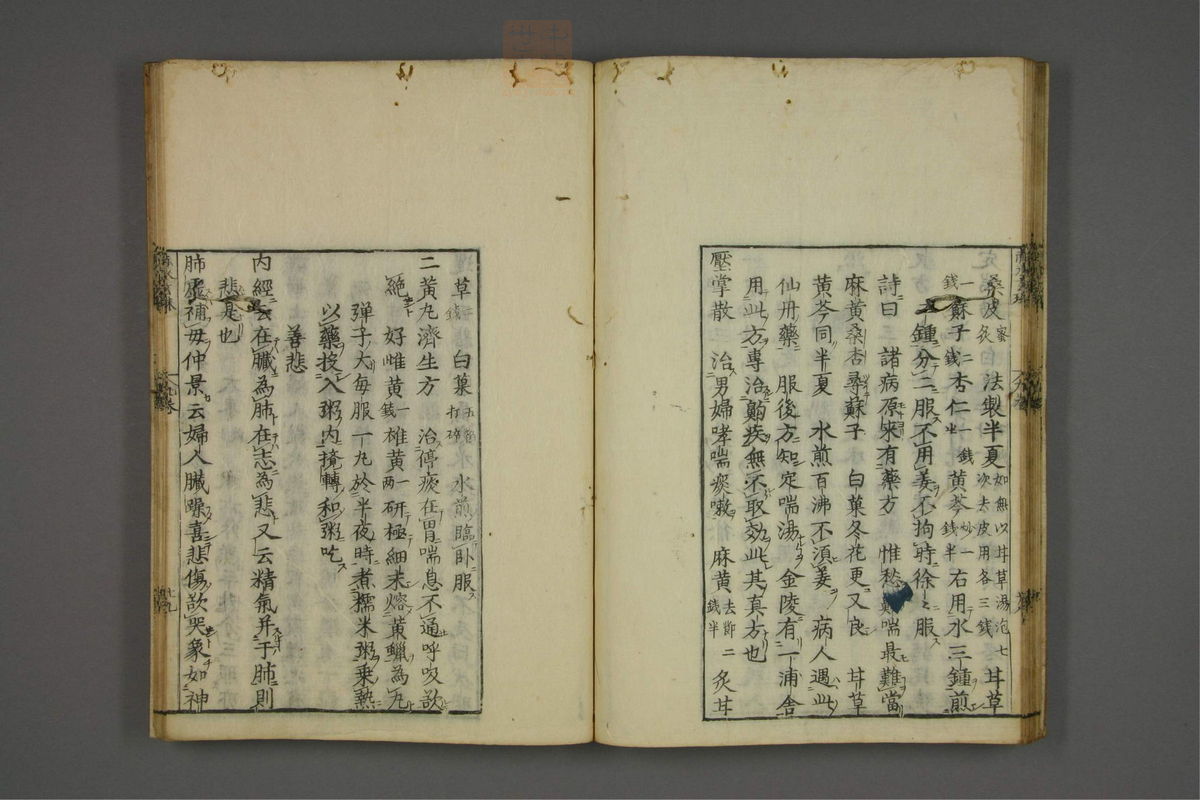 桑皮 蜜炙 法製半夏 如無以甘草湯泡七次去皮用各三錢 甘草
一錢 蘇子 二錢 杏仁 一錢半 黃芩 炒一錢半 右用水三鍾煎
二鍾分二服不用姜不拘時徐々服
詩曰 諸病原來有藥方 惟愁 喘最難當
麻黃桑杏尋蘇子 白菓冬花更又良 甘草
黃芩同半夏 水煎百沸不須姜 病人遇此
仙丹藥 服後方知定喘湯 金陵有一浦舍
用此方專治齁疾無不取效此其真方也
壓掌散三 治男婦哮喘痰嗽 麻黃 去節二錢半 炙甘
草 二錢 白菓 五箇打碎 水煎臨臥服
二黃丸濟生方 治停痰在胃喘息不通呼吸欲
絕 好雌黃 一錢 雄黃 一兩 研極細末熔黃蠟為丸
彈子大每服一丸於半夜時煮糯米粥乘熱
以藥投入粥內攪轉和粥吃
善悲
內經云在臟為肺在志為悲又云精氣并于肺則
悲是也
肺虛補母仲景云婦人臟躁喜悲傷欲哭象如神